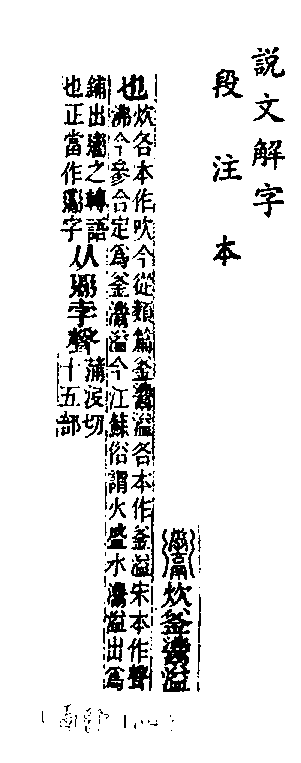 說文解字
段注本
炊釜溢
也
炊各本作吹今從類篇釜溢各本作釜溢宋本作聲
沸今參合定爲釜溢今江蘇俗謂火盛水溢出爲
鋪出之轉語
也正當作字
从䰜孛聲
蒲沒切
十五部